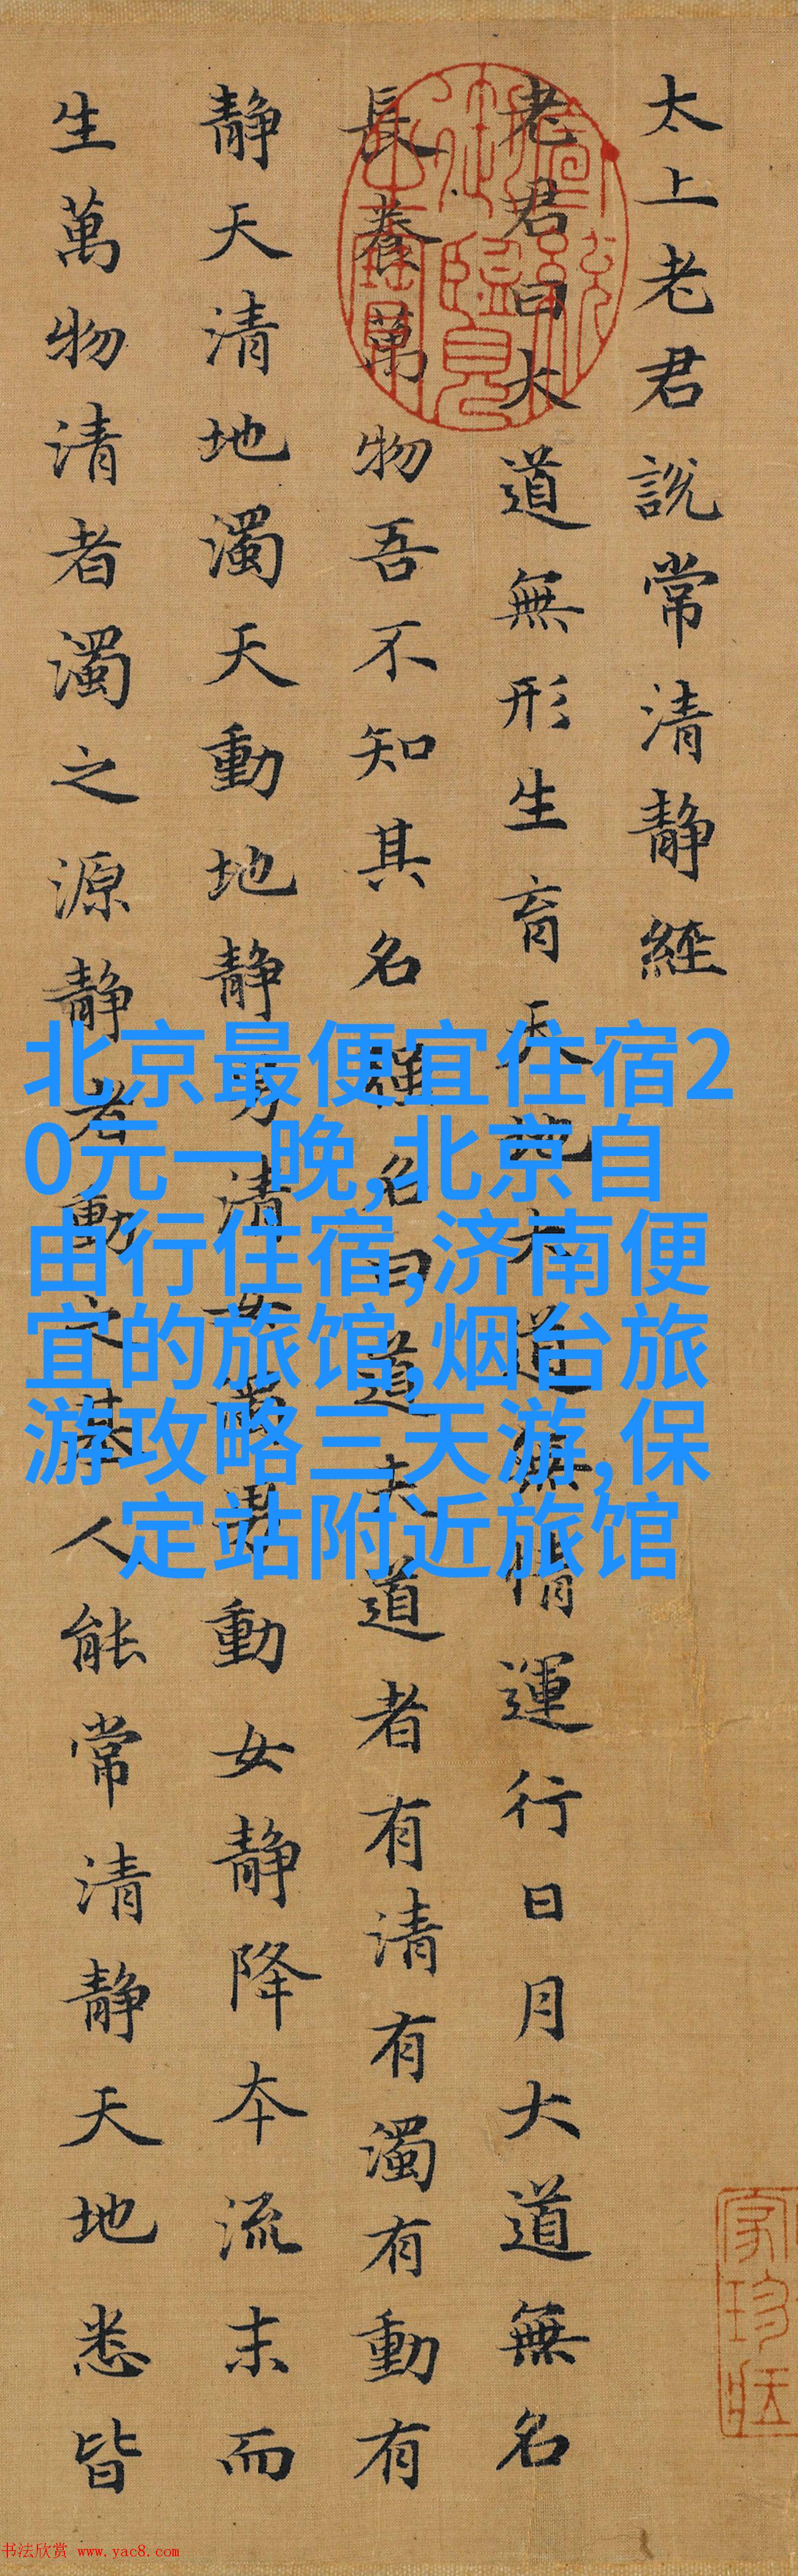 太上老君說常清靜經
老君曰大道無形生育天地大道無情運行日月大道無名
長養萬物吾不知其名強名曰道夫道者有清有濁有動有
靜天清地濁天動地靜男清女濁男動女靜降本流末而
生萬物清者濁之源靜者動之基人能常清靜天地悉皆
北京最便宜住宿2
0元一晚,北京自
由行住宿,济南便
宜的旅馆,烟台旅
游攻略三天游,保
定站附近旅馆
书法欣赏 www.yac8.com